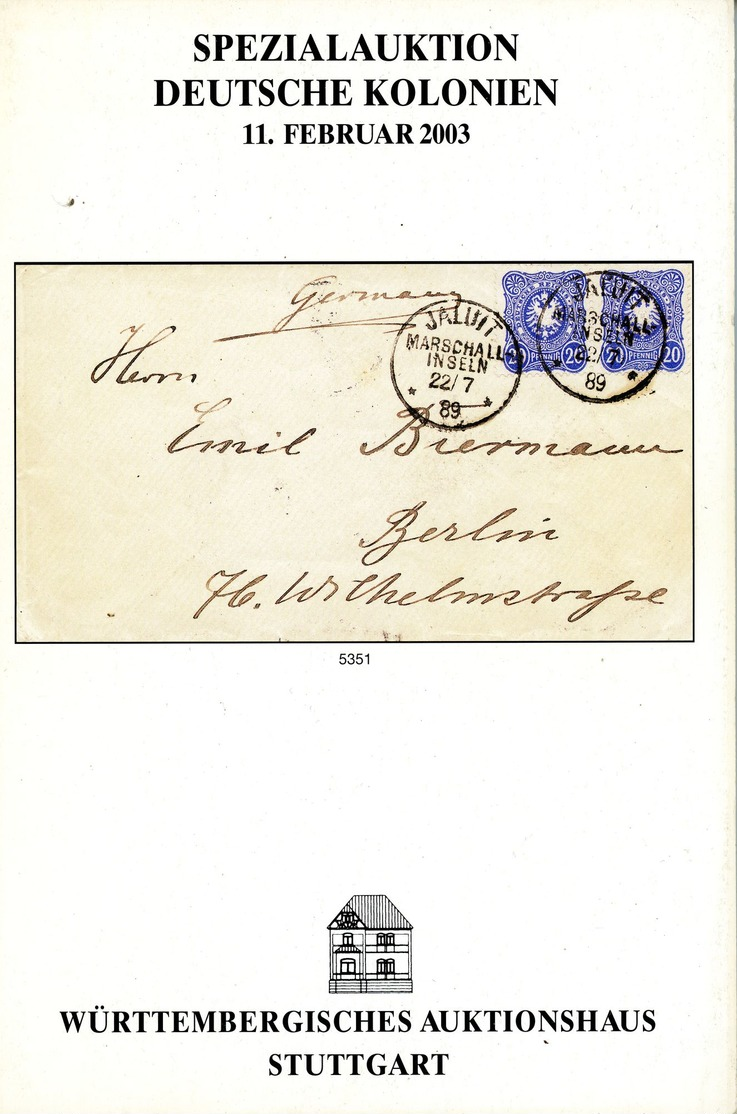 SPEZIALAUKTION
DEUTSCHE KOLONIEN
11. FEBRUAR 2003
Germany
JALUIT
MARSCHALL-
INSELN
22/7
89
JALUIT
MARSCHALL-
INSELN
22/7
89
20 PFENNIG 20
PFENNIG 20
Herrn
Emil Biermann
Berlin
Wilhelmstraße
5351
WÜRTTEMBERGISCHES AUKTIONSHAUS
STUTTGART